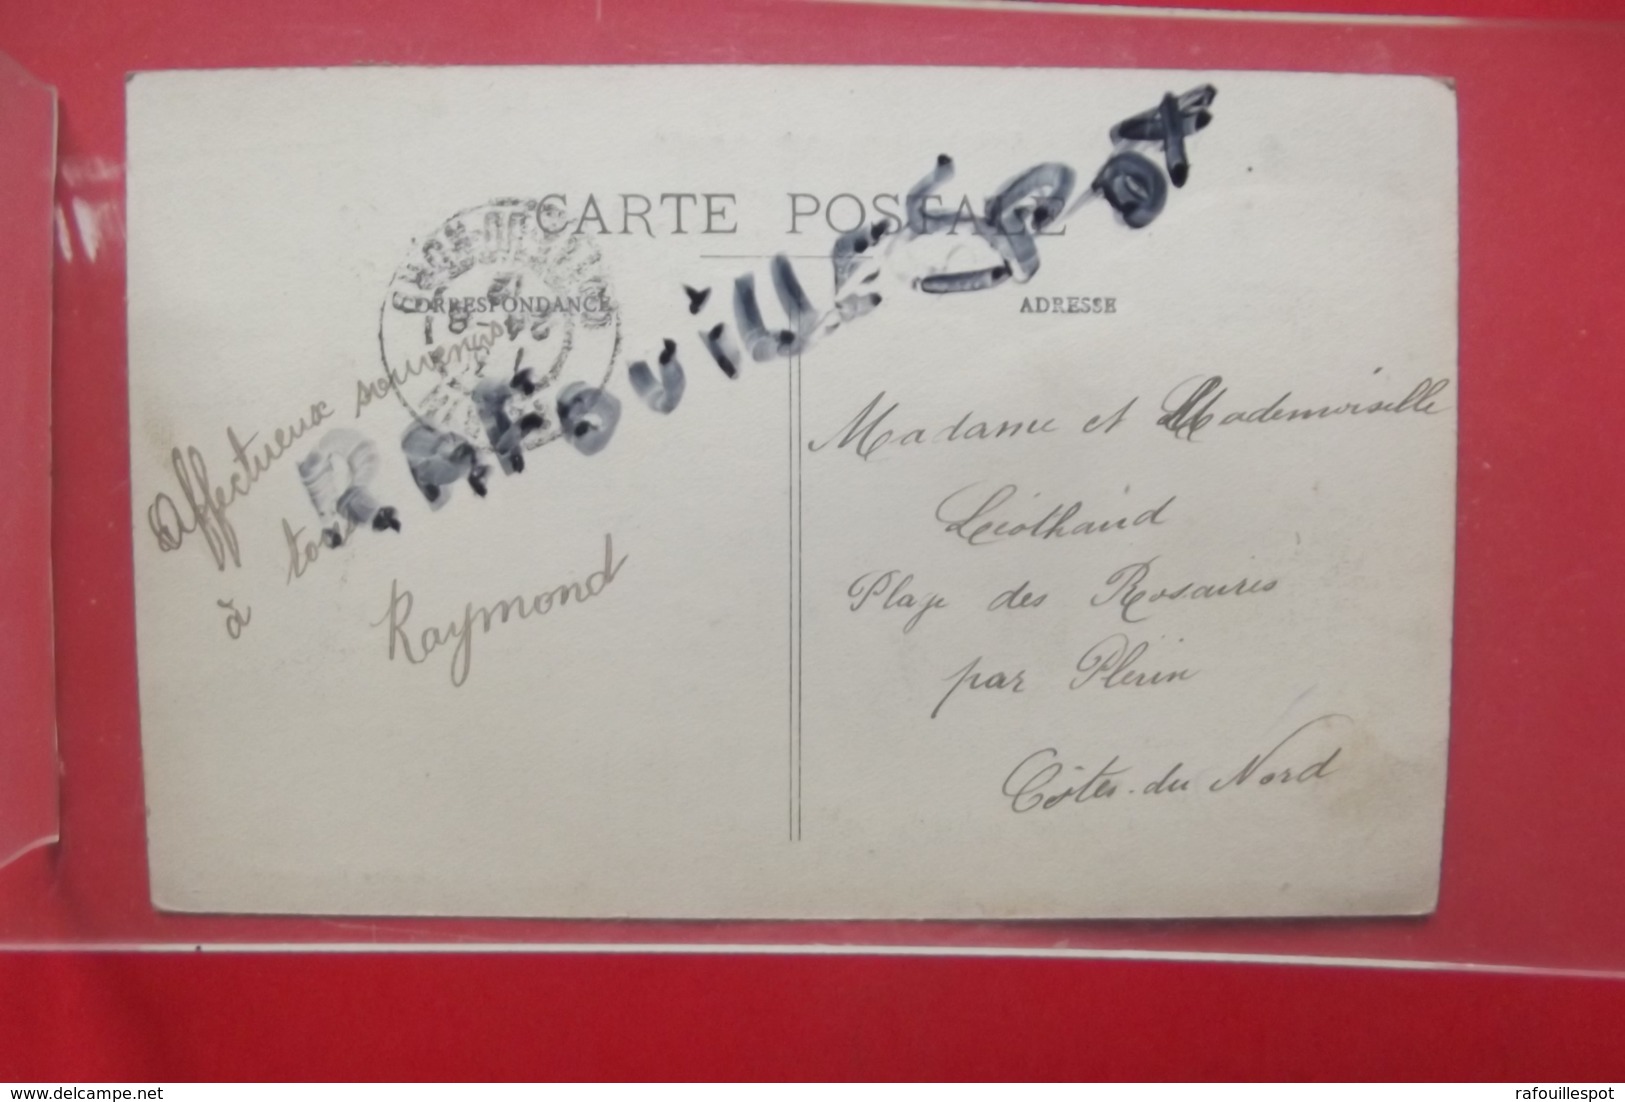 CARTE POSTALE
CORRESPONDANCE
ADRESSE
RAFOUILLESPOT
Affectueux souvenirs
à tous
Raymond
Madame et Mademoiselle
Plage des Rosaires
par Plérin
Côtes-du Nord
delcampe.net
rafouillespot